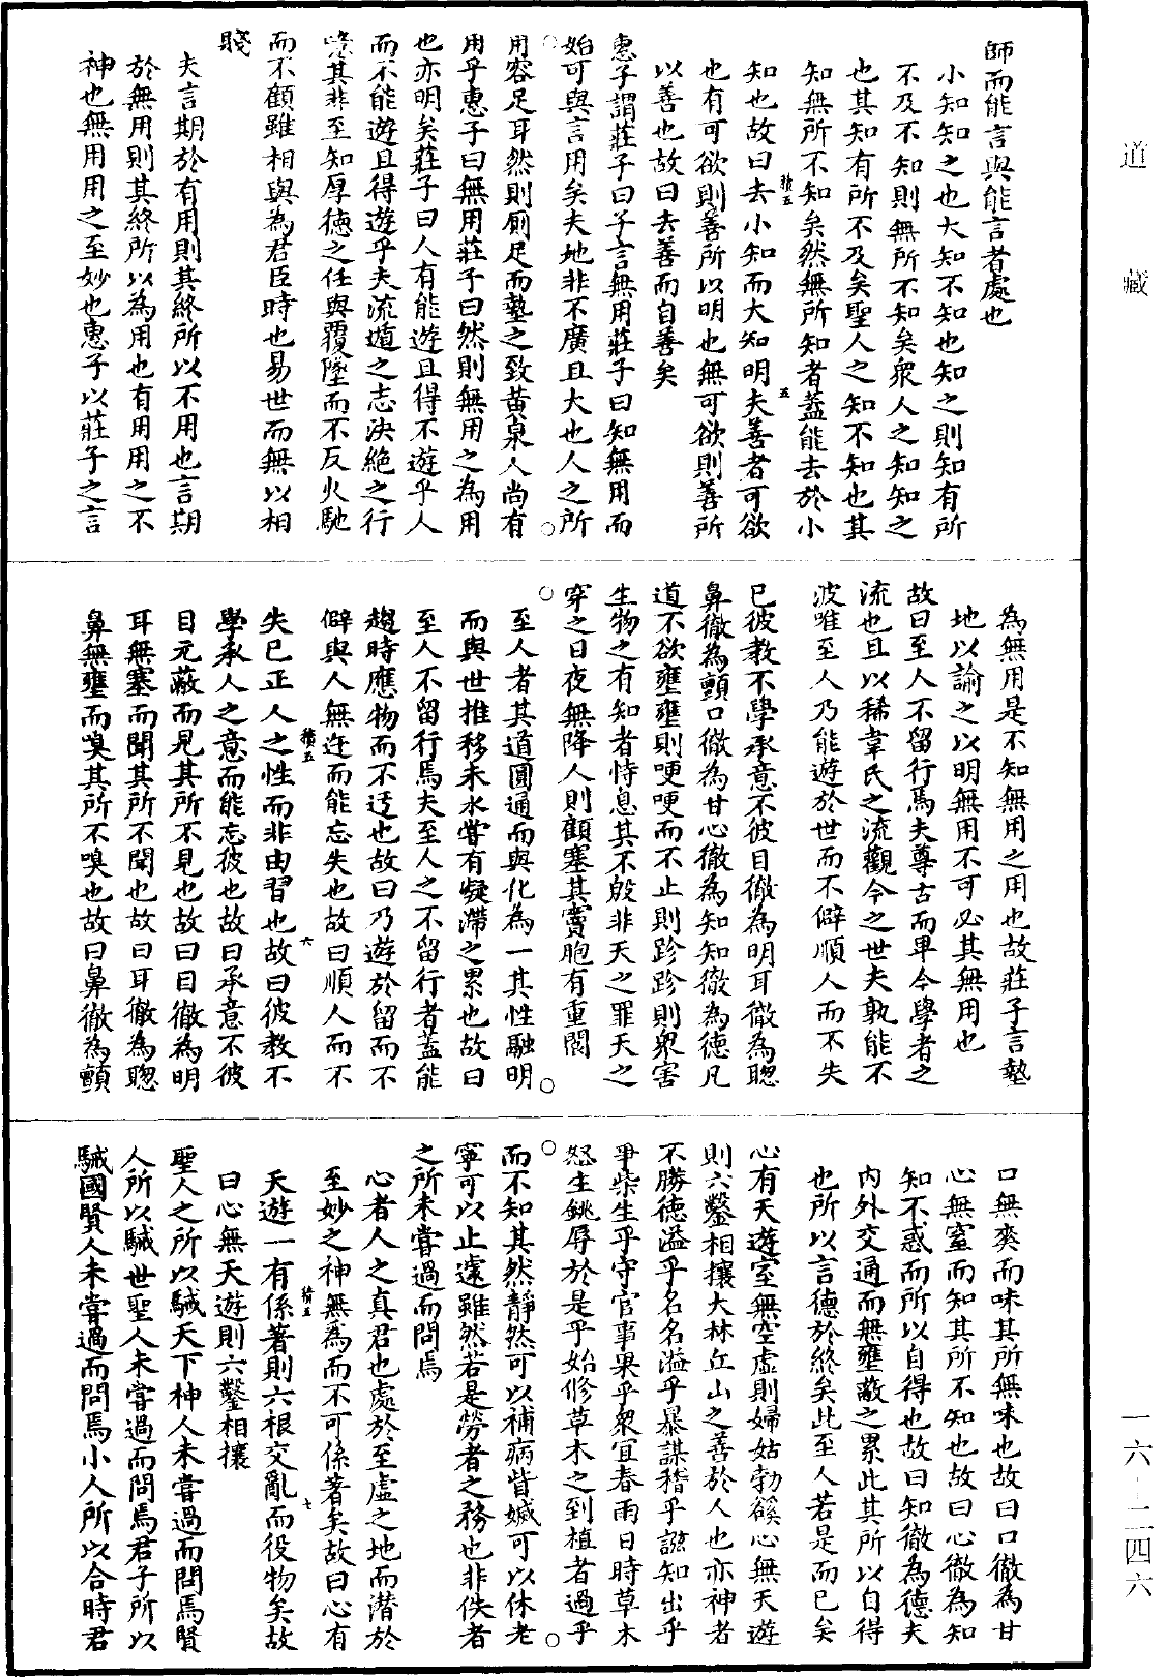 道藏
師而能言與能言者處也
小知知之也大知不知也知之則知有所
不及不知則無所不知矣衆人之知知之
也其知有所不及矣聖人之知不知也其
知無所不知矣然無所知者蓋能去於小
知也故曰去小知而大知明夫善者可欲
也有可欲則善所以明也無可欲則善所
以善也故曰去善而自善矣
惠子謂莊子曰子言無用莊子曰知無用而
始可與言用矣夫地非不廣且大也人之所
用容足耳然則廁足而墊之致黃泉人尚有
用乎惠子曰無用莊子曰然則無用之為用
也亦明矣莊子曰人有能遊且得不遊乎人
而不能遊且得遊乎夫流遁之志決絕之行
噫其非至知厚德之任與覆墜而不反火馳
而不顧雖相與為君臣時也易世而無以相
賤
夫言期於有用則其終所以不用也言期
於無用則其終所以為用也有用用之不
神也無用用之至妙也惠子以莊子之言
為無用是不知無用之用也故莊子言墊
地以諭之以明無用不可必其無用也
故曰至人不留行焉夫尊古而卑今學者之
流也且以狶韋氏之流觀今之世夫孰能不
波唯至人乃能遊於世而不僻順人而不失
已彼教不學承意不彼目徹為明耳徹為聰
鼻徹為顫口徹為甘心徹為知知徹為德凡
道不欲壅壅則哽哽而不止則跈跈則衆害
生物之有知者恃息其不殷非天之罪天之
穿之日夜無降人則顧塞其竇胞有重閬
至人者其道圓通而與化為一其性融明
而與世推移未水嘗有凝滯之累也故曰
至人不留行焉夫至人之不留行者蓋能
趨時應物而不迕也故曰乃遊於留而不
僻與人無迕而能忘失也故曰順人而不
失已正人之性而非由習也故曰彼教不
學承人之意而能忘彼也故曰承意不彼
目元蔽而見其所不見也故曰目徹為明
耳無塞而聞其所不聞也故曰耳徹為聰
鼻無壅而嗅其所不嗅也故曰鼻徹為顫
口無爽而味其所無味也故曰口徹為甘
心無窒而知其所不知也故曰心徹為知
知不惑而所以自得也故曰知徹為德夫
內外交通而無壅蔽之累此其所以自得
也所以言德於終矣此至人若是而已矣
心有天遊室無空虛則婦姑勃豀心無天遊
則六鑿相攘大林丘山之善於人也亦神者
不勝德溢乎名名溢乎暴謀稽乎誸知出乎
爭柴生乎守官事果乎衆宜春雨日時草木
怒生銚鎒於是乎始修草木之到植者過乎
而不知其然靜然可以補病眥㓕可以休老
寧可以止遽雖然若是勞者之務也非佚者
之所未嘗過而問焉
心者人之真君也處於至虛之地而潜於
至妙之神無為而不可係著矣故曰心有
天遊一有係著則六根交亂而役物矣故
曰心無天遊則六鑿相攘
聖人之所以駴天下神人未嘗過而問焉賢
人所以駴世聖人未嘗過而問焉君子所以
駴國賢人未嘗過而問焉小人所以合時君
積五
五
積五
六
積五
七
一六-二四六